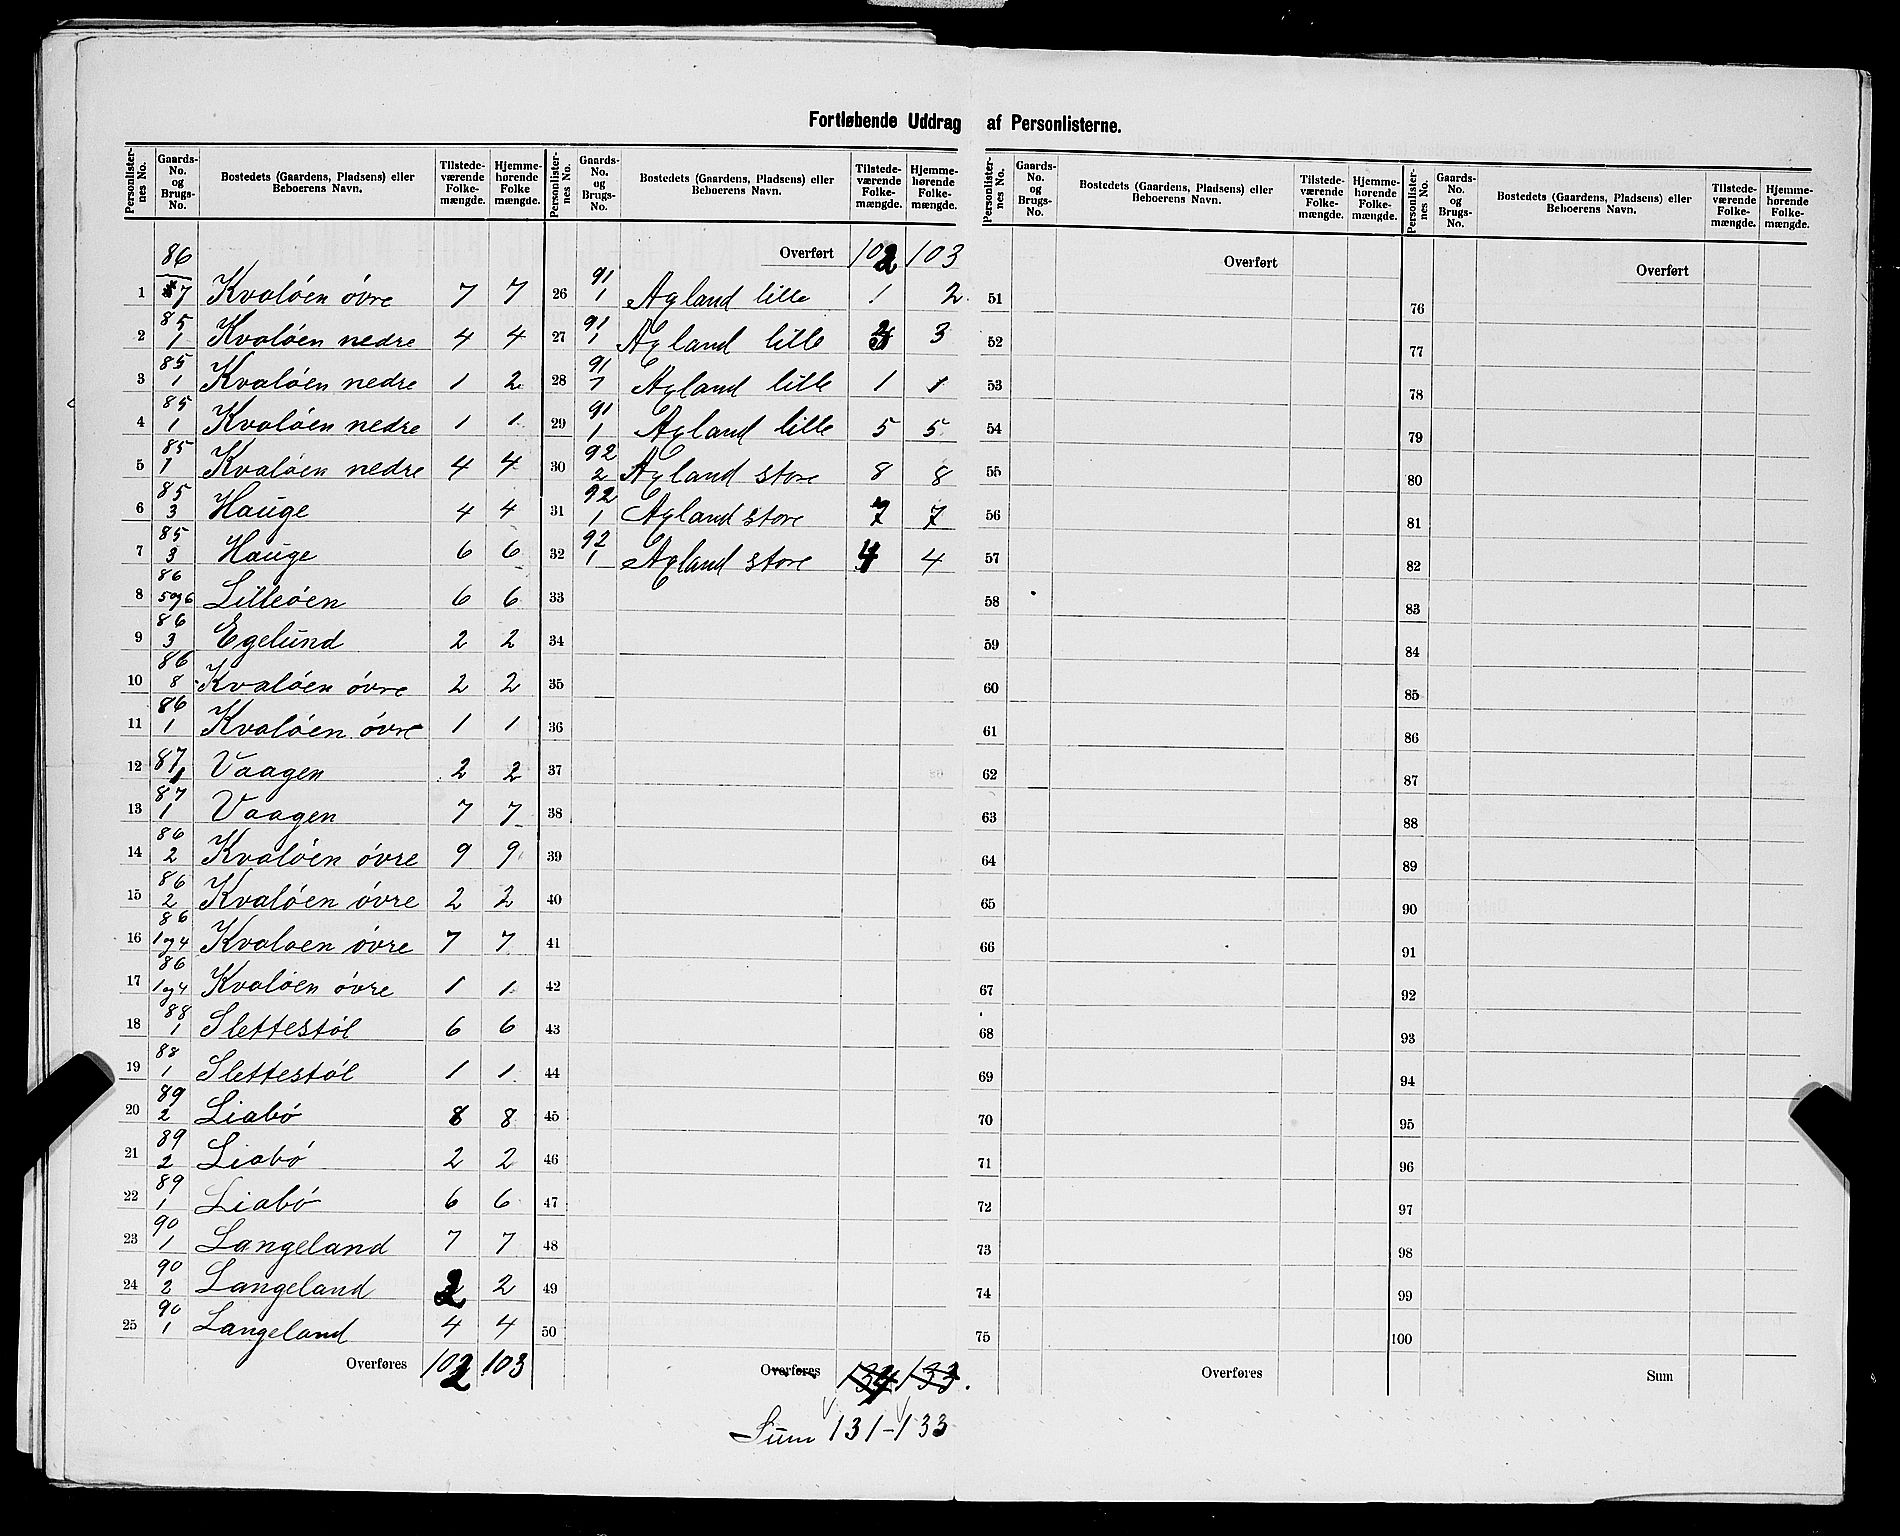 Fortløbende Uddrag af Personlisterne.
Personlisternes No. | Gaards-No. og Brugs-No. | Bostedets (Gaardens, Pladsens) eller Beboerens Navn. | Tilstedeværende Folkemængde. | Hjemmehørende Folkemængde.
1 | 86 7 | Kvaløen øvre | 7 | 7
2 | 85 1 | Kvaløen nedre | 4 | 4
3 | 85 1 | Kvaløen nedre | 1 | 2
4 | 85 1 | Kvaløen nedre | 1 | 1
5 | 85 1 | Kvaløen nedre | 4 | 4
6 | 85 3 | Hauge | 4 | 4
7 | 85 3 | Hauge | 6 | 6
8 | 86 5og6 | Lilleøen | 6 | 6
9 | 86 3 | Egelund | 2 | 2
10 | 86 8 | Kvaløen øvre | 2 | 2
11 | 86 1 | Kvaløen øvre | 1 | 1
12 | 87 1 | Vaagen | 2 | 2
13 | 87 1 | Vaagen | 7 | 7
14 | 86 2 | Kvaløen øvre | 9 | 9
15 | 86 2 | Kvaløen øvre | 2 | 2
16 | 86 1og4 | Kvaløen øvre | 7 | 7
17 | 86 1og4 | Kvaløen øvre | 1 | 1
18 | 88 1 | Slettestøl | 6 | 6
19 | 88 1 | Slettestøl | 1 | 1
20 | 89 2 | Liabø | 8 | 8
21 | 89 2 | Liabø | 2 | 2
22 | 89 1 | Liabø | 6 | 6
23 | 90 1 | Langeland | 7 | 7
24 | 90 2 | Langeland | 2 | 2
25 | 90 1 | Langeland | 4 | 4
Overføres 102 103
Personlisternes No. | Gaards-No. og Brugs-No. | Bostedets (Gaardens, Pladsens) eller Beboerens Navn. | Tilstedeværende Folkemængde. | Hjemmehørende Folkemængde.
Overført 102 103
26 | 91 1 | Agland lille | 1 | 2
27 | 91 1 | Agland lille | 3 | 3
28 | 91 1 | Agland lille | 1 | 1
29 | 91 1 | Agland lille | 5 | 5
30 | 92 2 | Agland store | 8 | 8
31 | 92 1 | Agland store | 7 | 7
32 | 92 1 | Agland store | 4 | 4
33
34
35
36
37
38
39
40
41
42
43
44
45
46
47
48
49
50
Overføres 133
Sum 131 - 133
Personlisternes No. | Gaards-No. og Brugs-No. | Bostedets (Gaardens, Pladsens) eller Beboerens Navn. | Tilstedeværende Folkemængde. | Hjemmehørende Folkemængde.
Overført
51
52
53
54
55
56
57
58
59
60
61
62
63
64
65
66
67
68
69
70
71
72
73
74
75
Overføres
Personlisternes No. | Gaards-No. og Brugs-No. | Bostedets (Gaardens, Pladsens) eller Beboerens Navn. | Tilstedeværende Folkemængde. | Hjemmehørende Folkemængde.
Overført
76
77
78
79
80
81
82
83
84
85
86
87
88
89
90
91
92
93
94
95
96
97
98
99
100
Sum